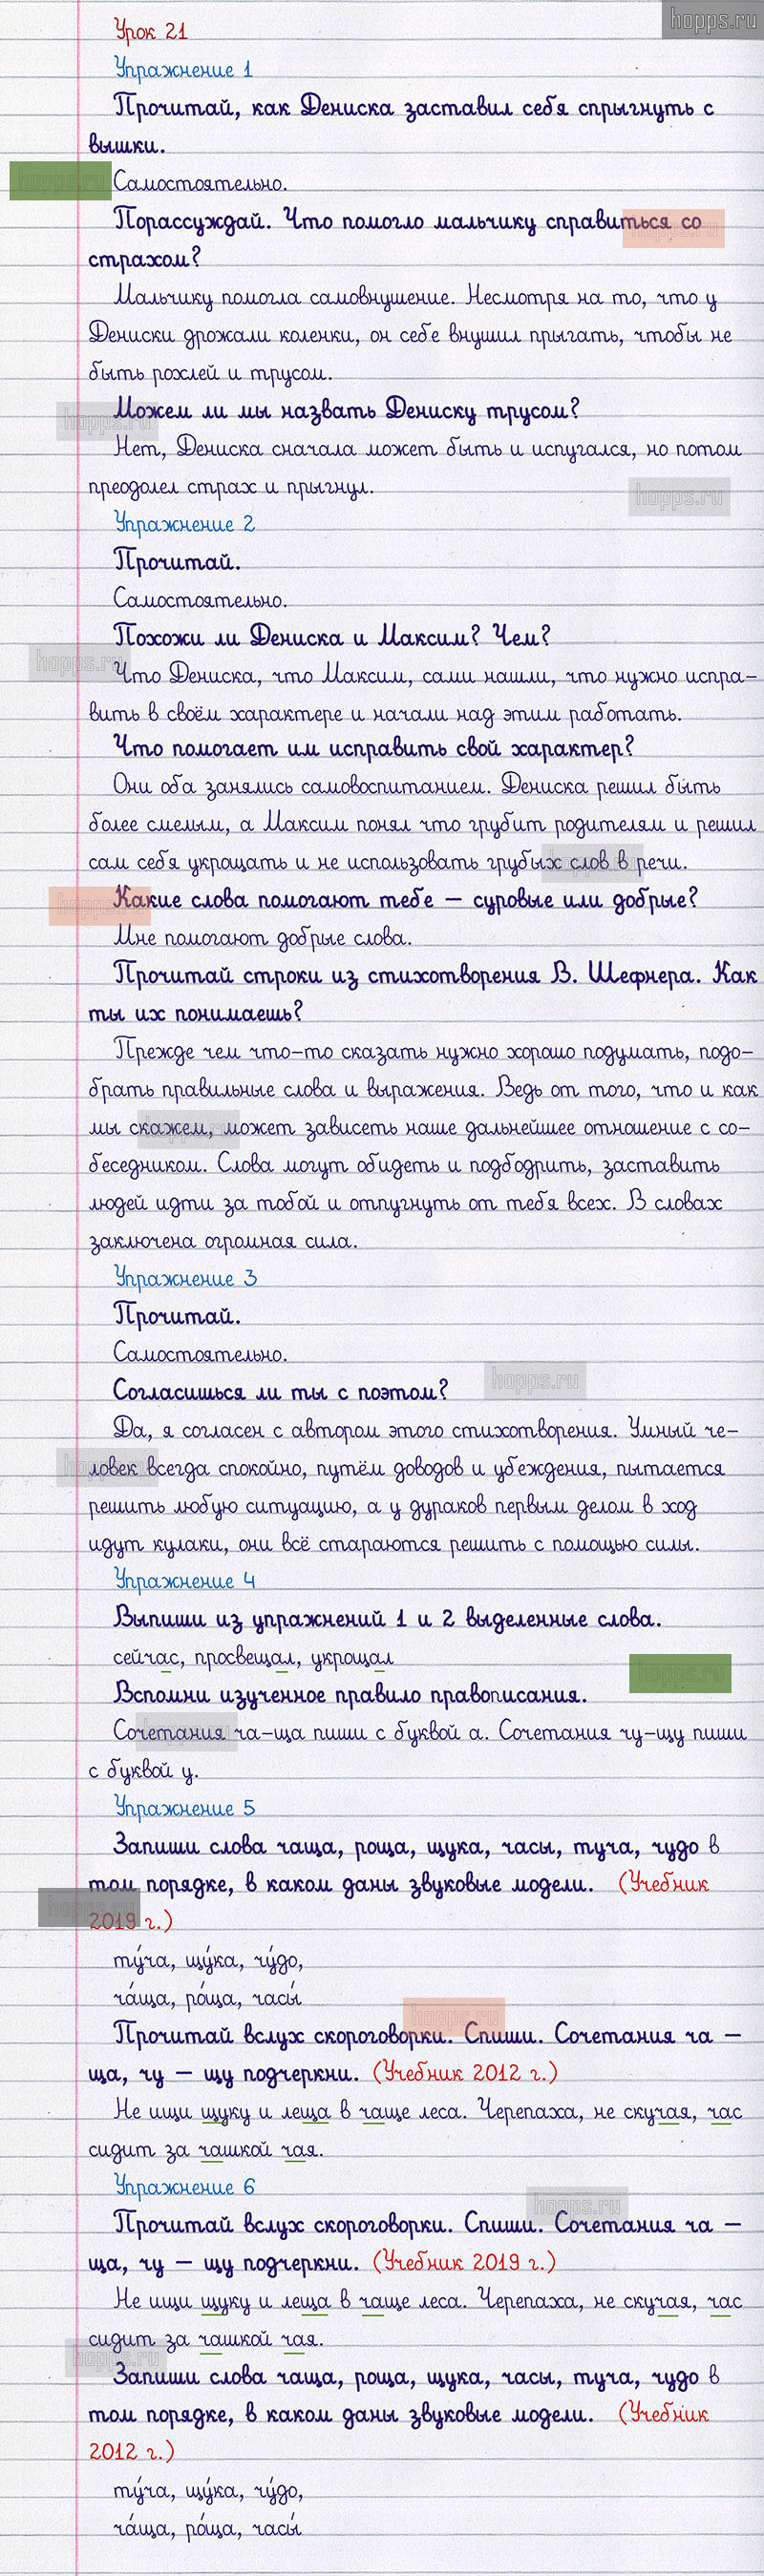 hopps.ru
Урок 21
Упражнение 1
Прочитай, как Дениска заставил себя спрыгнуть с
вышки.
hopps.ru
Самостоятельно.
Порассуждай. Что помогло мальчику справиться со
hopps.ru
страхом?
Мальчику помогла самовнушение. Несмотря на то, что у
Дениски дрожали коленки, он себе внушил прыгать, чтобы не
быть рохлей и трусом.
Можем ли мы назвать Дениску трусом?
hopps.ru
Нет, Дениска сначала может быть и испугался, но потом
преодолел страх и прыгнул.
hopps.ru
Упражнение 2
Прочитай.
Самостоятельно.
Похожи ли Дениска и Максим? Чем?
hopps.ru
Что Дениска, что Максим, сами нашли, что нужно испра-
вить в своём характере и начали над этим работать.
Что помогает им исправить свой характер?
Они оба занялись самовоспитанием. Дениска решил быть
более смелым, а Максим понял что грубит родителям и решил
сам себя укрощать и не использовать грубых слов в речи.
hopps.ru
Какие слова помогают тебе — суровые или добрые?
hopps.ru
Мне помогают добрые слова.
Прочитай строки из стихотворения В. Шефнера. Как
ты их понимаешь?
Прежде чем что-то сказать нужно хорошо подумать, подо-
брать правильные слова и выражения. Ведь от того, что и как
мы скажем, может зависеть наше дальнейшее отношение с со-
hopps.ru
беседником. Слова могут обидеть и подбодрить, заставить
людей идти за тобой и отпугнуть от тебя всех. В словах
заключена огромная сила.
Упражнение 3
Прочитай.
Самостоятельно.
Согласишься ли ты с поэтом?
hopps.ru
Да, я согласен с автором этого стихотворения. Умный че-
ловек всегда спокойно, путём доводов и убеждения, пытается
hopps.ru
решить любую ситуацию, а у дураков первым делом в ход
идут кулаки, они всё стараются решить с помощью силы.
Упражнение 4
Выпиши из упражнений 1 и 2 выделенные слова.
сейчас, просвещал, укрощал
hopps.ru
Вспомни изученное правило правописания.
Сочетания ча-ща пиши с буквой а. Сочетания чу-щу пиши
hopps.ru
с буквой у.
Упражнение 5
Запиши слова чаща, роща, щука, часы, туча, чудо в
том порядке, в каком даны звуковые модели. (Учебник
hopps.ru
2019 г.)
ту́ча, щу́ка, чу́до,
ча́ща, ро́ща, часы́
hopps.ru
Прочитай вслух скороговорки. Спиши. Сочетания ча —
ща, чу — щу подчеркни. (Учебник 2012 г.)
Не ищи щуку и леща в чаще леса. Черепаха, не скучая, час
сидит за чашкой чая.
Упражнение 6
hopps.ru
Прочитай вслух скороговорки. Спиши. Сочетания ча —
ща, чу — щу подчеркни. (Учебник 2019 г.)
Не ищи щуку и леща в чаще леса. Черепаха, не скучая, час
сидит за чашкой чая.
hopps.ru
Запиши слова чаща, роща, щука, часы, туча, чудо в
том порядке, в каком даны звуковые модели. (Учебник
2012 г.)
ту́ча, щу́ка, чу́до,
ча́ща, ро́ща, часы́